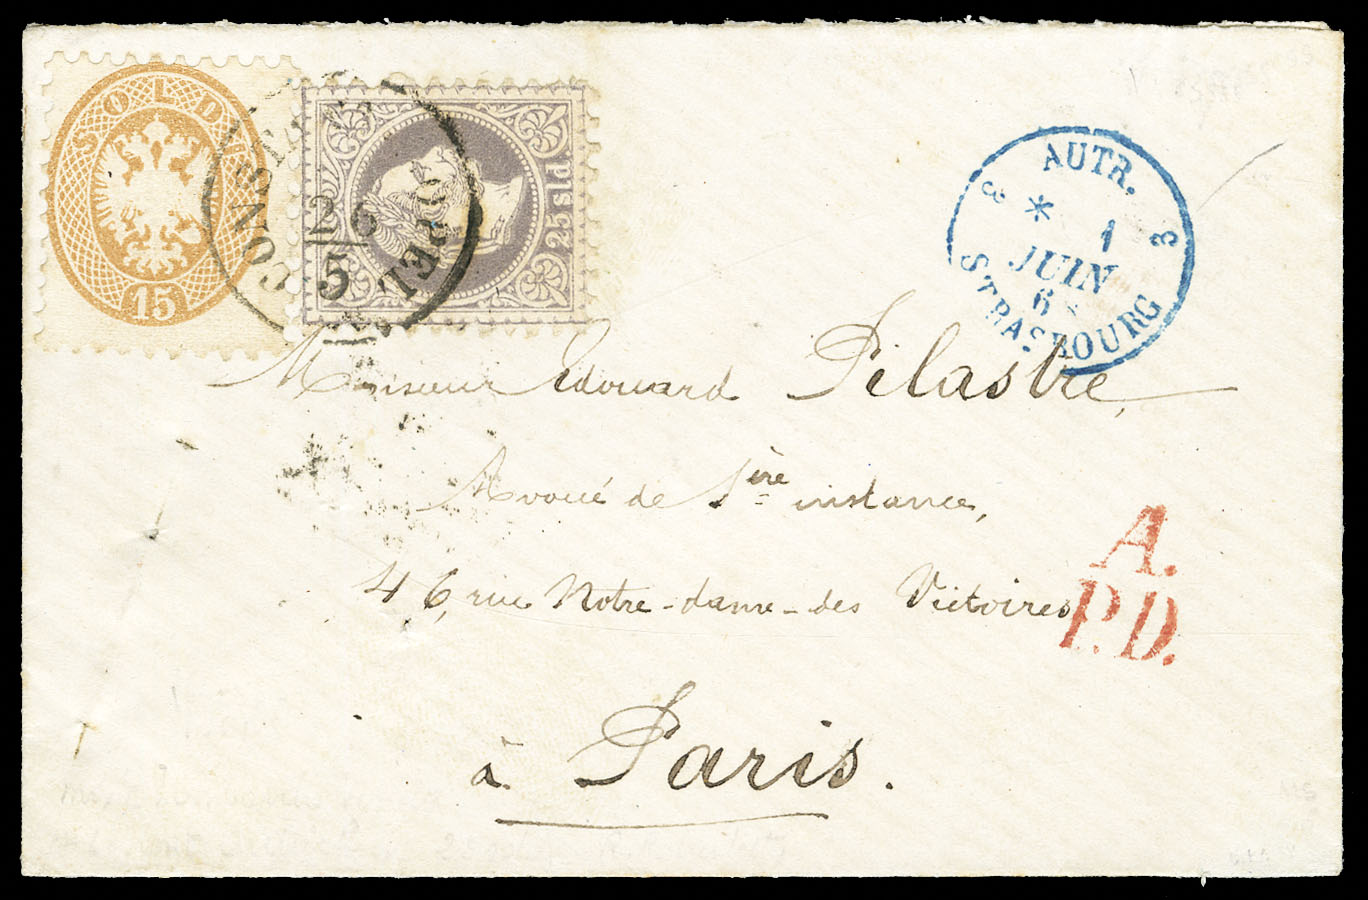 SOLDI
15
25 sld
CONSTANTINOPEL
26
5
AUTR.
3 * 1 3
JUIN
6
STRASBOURG
Monsieur Edouard Pilastre,
Avoué de 1ère instance,
46, rue Notre-dame-des Victoires
A.
P.D.
à Paris.